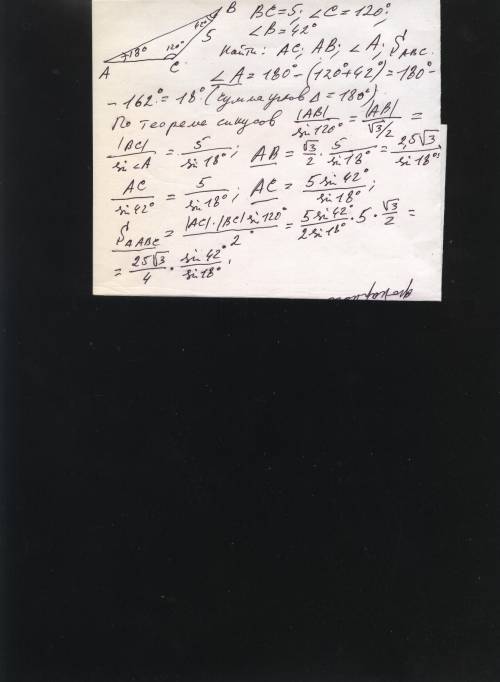 B BC = 5, ∠C = 120°,
42° 5 ∠B = 42°
18° 120° Найти: AC; AB; ∠A; S ABC.
A C ∠A = 180° - (120° + 42°) = 180° -
- 162° = 18° (сумма углов Δ = 180°)
По теореме синусов |AB|/sin120° = |AB|/√3/2 =
|BC|/sin∠A = 5/sin18°; AB = √3/2 · 5/sin18° = 2,5√3/sin18°;
AC/sin42° = 5/sin18°; AC = 5sin42°/sin18°;
S ΔABC = |AC|·|BC|sin120°/2 = 5sin42°/2sin18° · 5 · √3/2 =
= 25√3/4 · sin42°/sin18°;